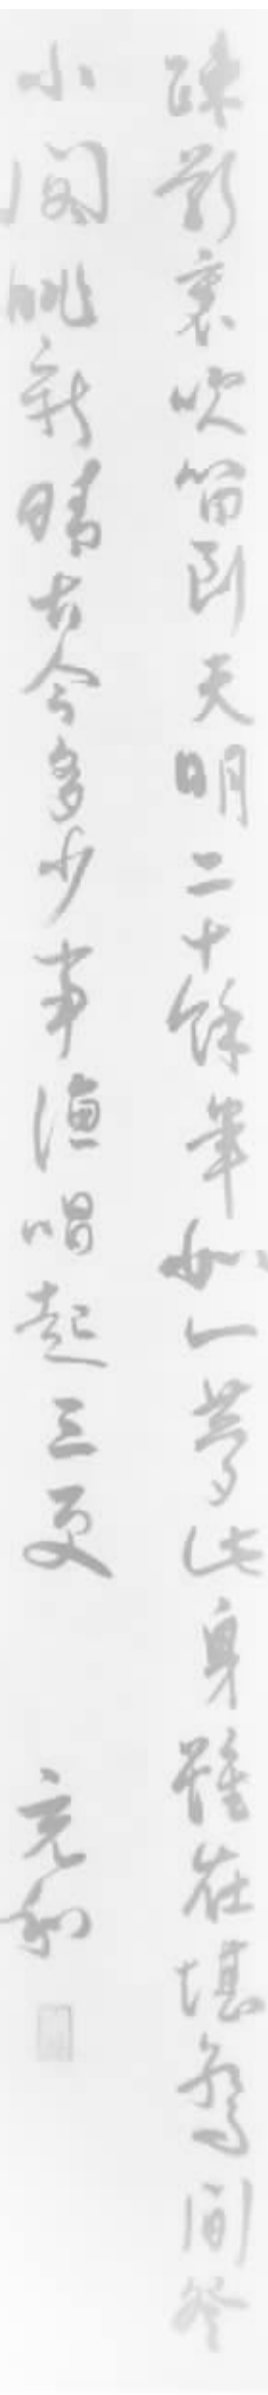 疎影裏吹笛到天明二十餘年如一夢此身雖在堪驚閒登
小閣眺新晴古今多少事漁唱起三更
充和